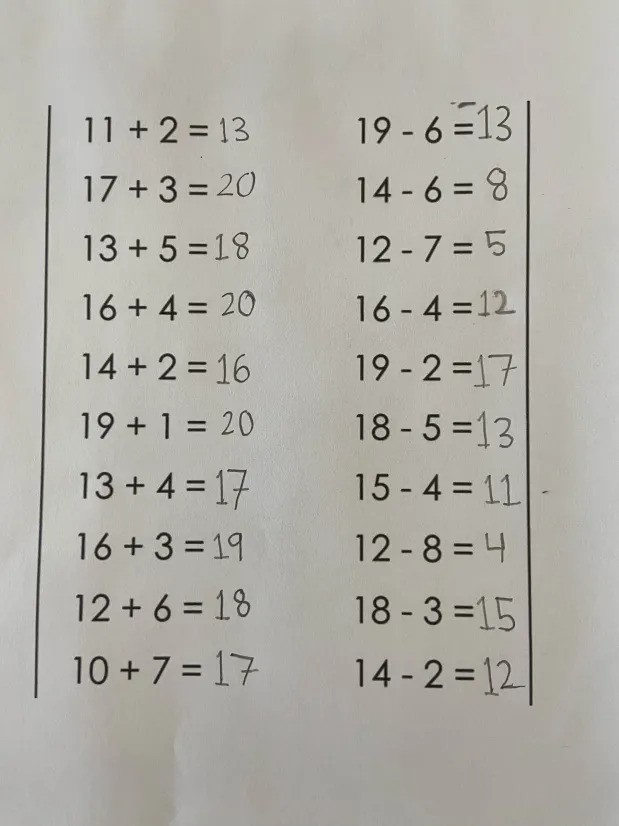 11 + 2 = 13
17 + 3 = 20
13 + 5 = 18
16 + 4 = 20
14 + 2 = 16
19 + 1 = 20
13 + 4 = 17
16 + 3 = 19
12 + 6 = 18
10 + 7 = 17
19 - 6 = 13
14 - 6 = 8
12 - 7 = 5
16 - 4 = 12
19 - 2 = 17
18 - 5 = 13
15 - 4 = 11
12 - 8 = 4
18 - 3 = 15
14 - 2 = 12